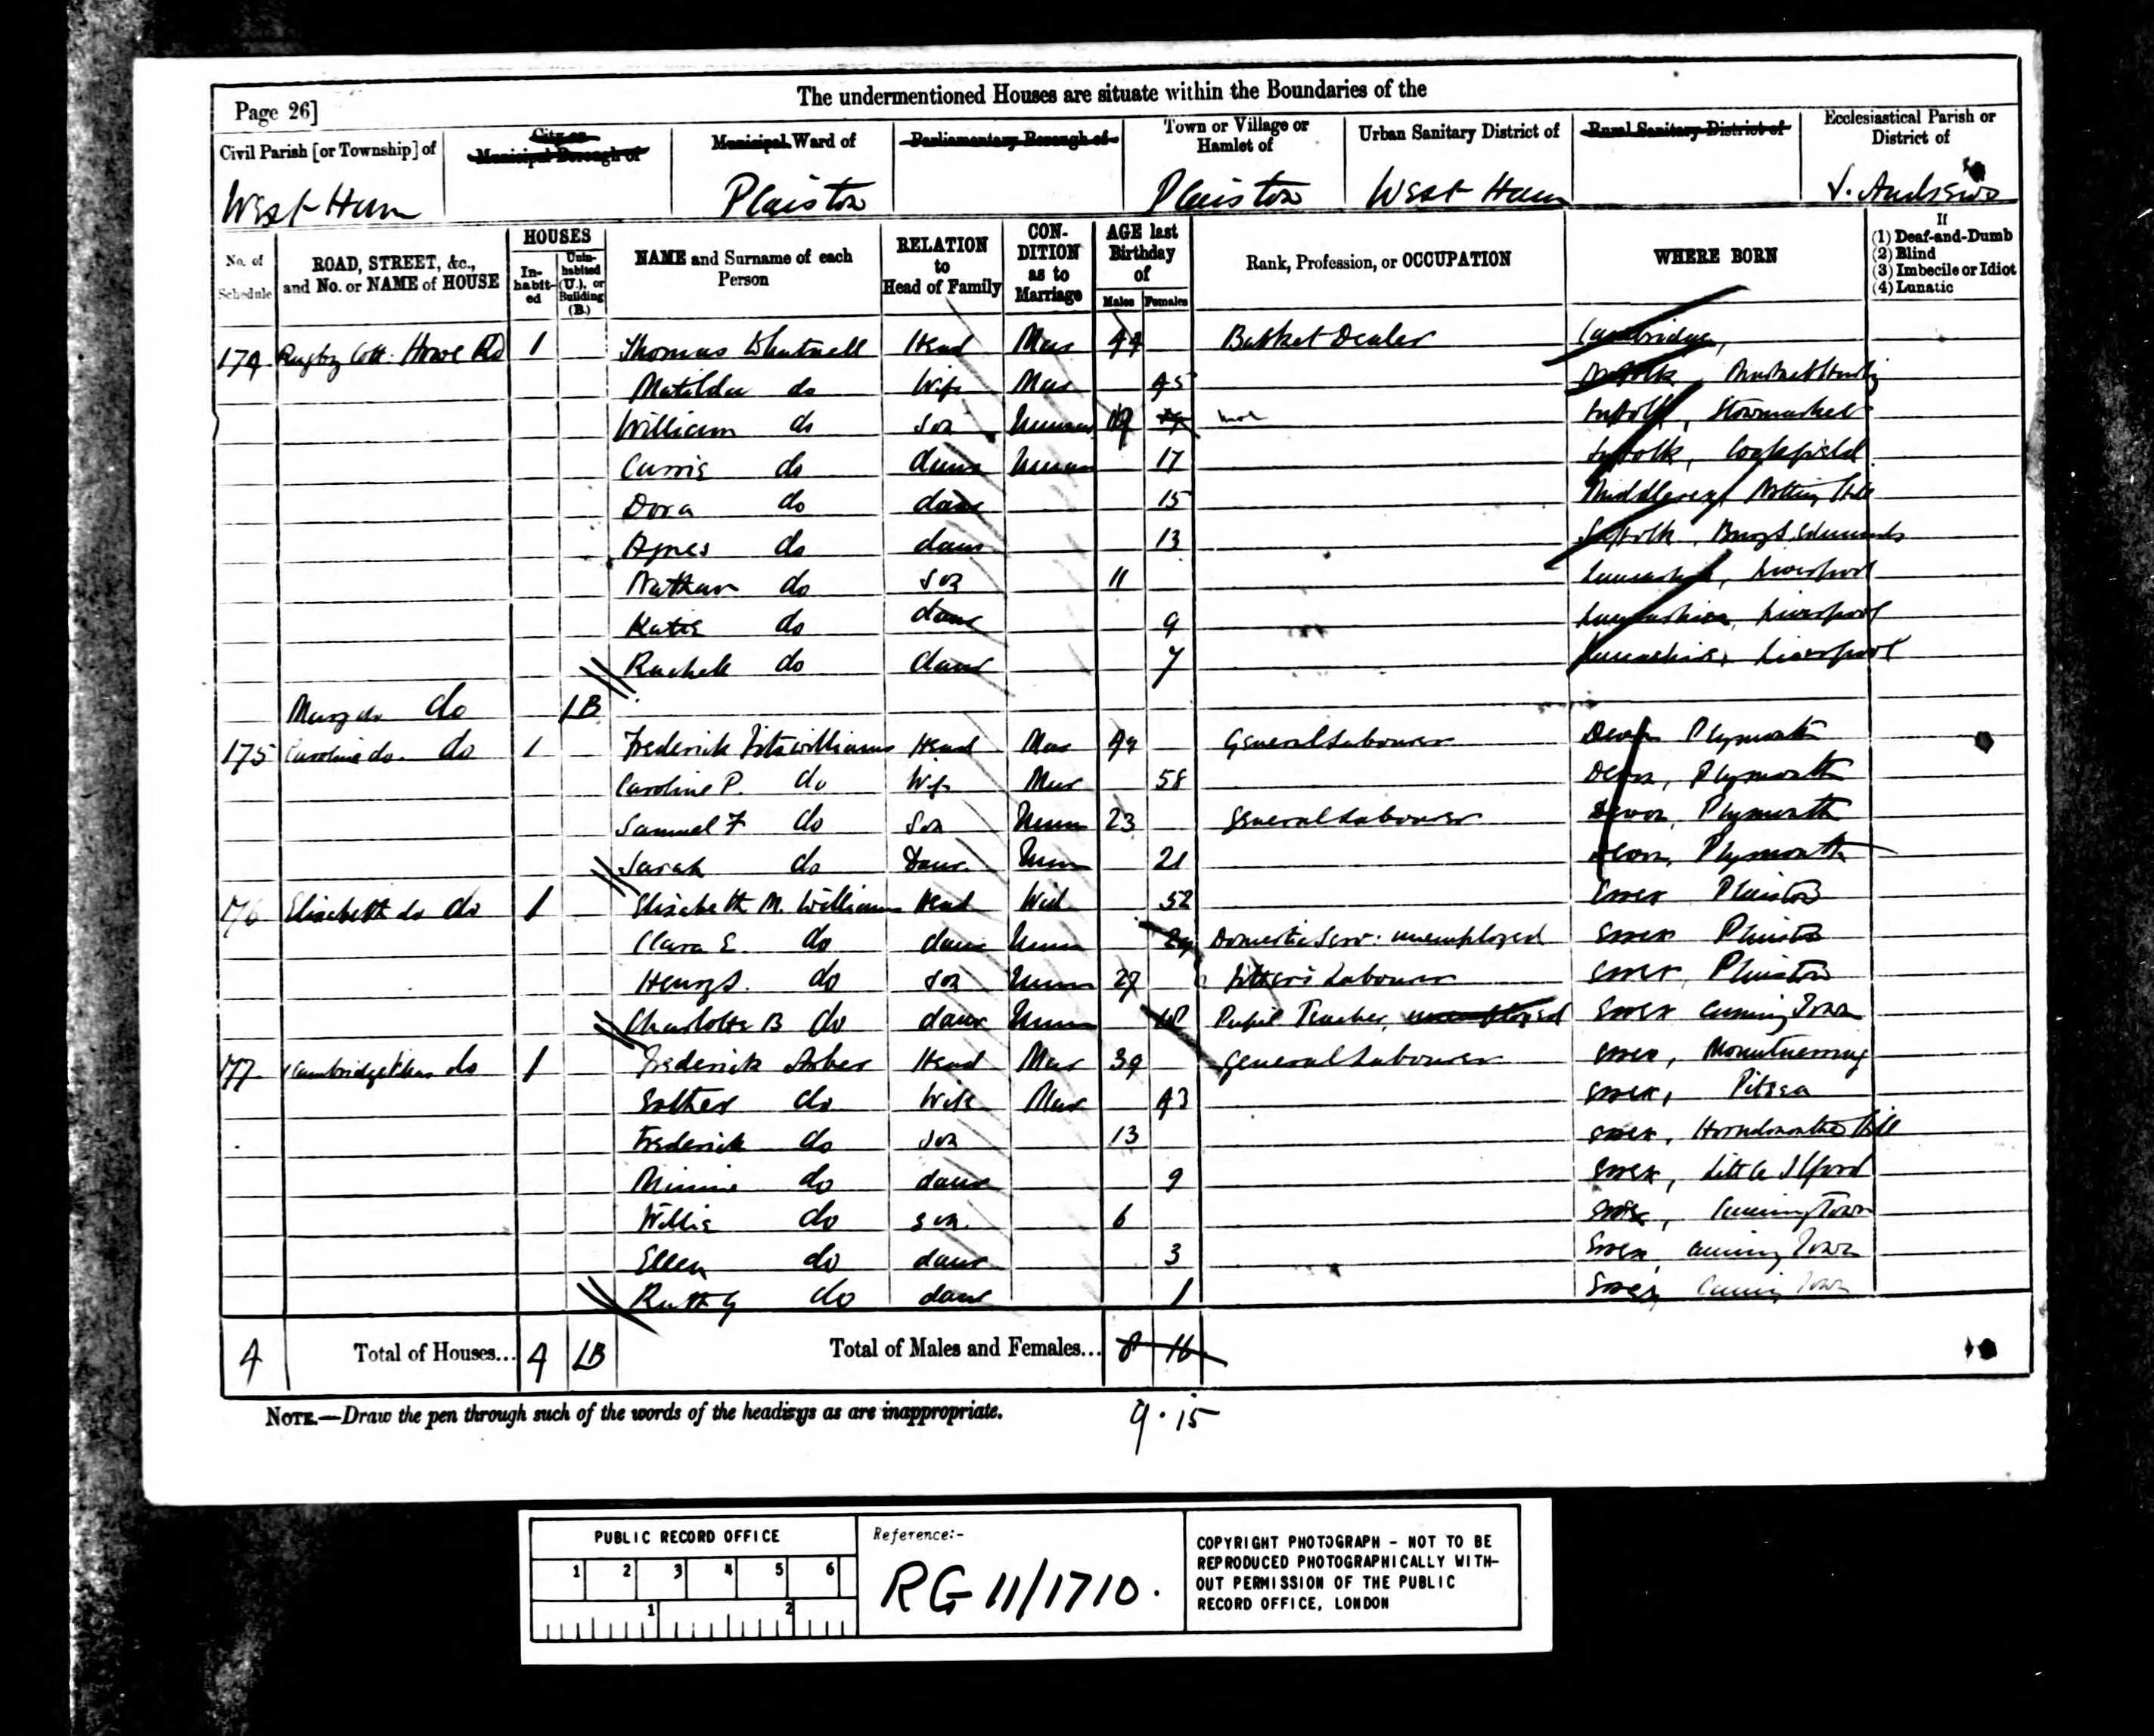 The undermentioned Houses are situate within the Boundaries of the
Page 26]
Civil Parish [or Township] of
City or Municipal Borough of
Municipal Ward of
Parliamentary Borough of
Town or Village or Hamlet of
Urban Sanitary District of
Rural Sanitary District of
Ecclesiastical Parish or District of
West Ham Plaistow Plaistow West Ham St. Andrews
No. of Schedule
ROAD, STREET, &c., and No. or NAME of HOUSE
HOUSES
In-habit-ed
Unin-habited (U.), or Building (B.)
NAME and Surname of each Person
RELATION to Head of Family
CON-DITION as to Marriage
AGE last Birthday of
Males Females
Rank, Profession, or OCCUPATION
WHERE BORN
If
(1) Deaf-and-Dumb
(2) Blind
(3) Imbecile or Idiot
(4) Lunatic
174 Rugby Cott. Howe Rd 1 Thomas Head Mar 44 Basket Dealer Cambridge,
Matilda do Wife Mar 45 Norfolk,
William do Son Unmar 19 Suffolk, Stowmarket
Carrie do daur Unmar 17 Suffolk, Cockfield
Dora do daur 15 Middlesex, Notting Hill
Agnes do daur 13 Suffolk, Bury St Edmunds
Nathan do Son 11 Lancashire, Liverpool
Katie do daur 9 Lancashire, Liverpool
Rachel do daur 7 Lancashire, Liverpool
Mary do do 1B
175 Caroline do. do 1 Frederick Fitzwilliams Head Mar General Labourer Devon Plymouth
Caroline P. do Wife Mar 58 Devon, Plymouth
Samuel F do Son Unm 23 General Labourer Devon, Plymouth
Sarah do Daur. Unm 21 Devon, Plymouth
176 Elizabeth do do 1 Elizabeth M. Williams Head Wid 52 Essex Plaistow
Clara E. do daur Unm 29 Domestic Serv: unemployed Essex Plaistow
Henry S. do Son Unm 27 Fitter's Labourer Essex Plaistow
Charlotte B do daur Unm 18 Pupil Teacher, unemployed Essex Canning Town
177 Cambridge do 1 Frederick Head Mar 39 General Labourer Essex, Mountnessing
Esther do Wife Mar 43 Essex, Pitsea
Frederick do Son 13 Essex, Horndon on the Hill
Minnie do daur 9 Essex, Little Ilford
Willie do Son 6 Essex, Canning Town
Ellen do daur 3 Essex, Canning Town
Ruth G do daur 1 Essex, Canning Town
4 Total of Houses... 4 1B Total of Males and Females... 8 16
NOTE.—Draw the pen through such of the words of the headings as are inappropriate.
9 . 15
PUBLIC RECORD OFFICE
1 2 3 4 5 6
1 2
Reference:-
RG 11/1710.
COPYRIGHT PHOTOGRAPH - NOT TO BE
REPRODUCED PHOTOGRAPHICALLY WITH-
OUT PERMISSION OF THE PUBLIC
RECORD OFFICE, LONDON